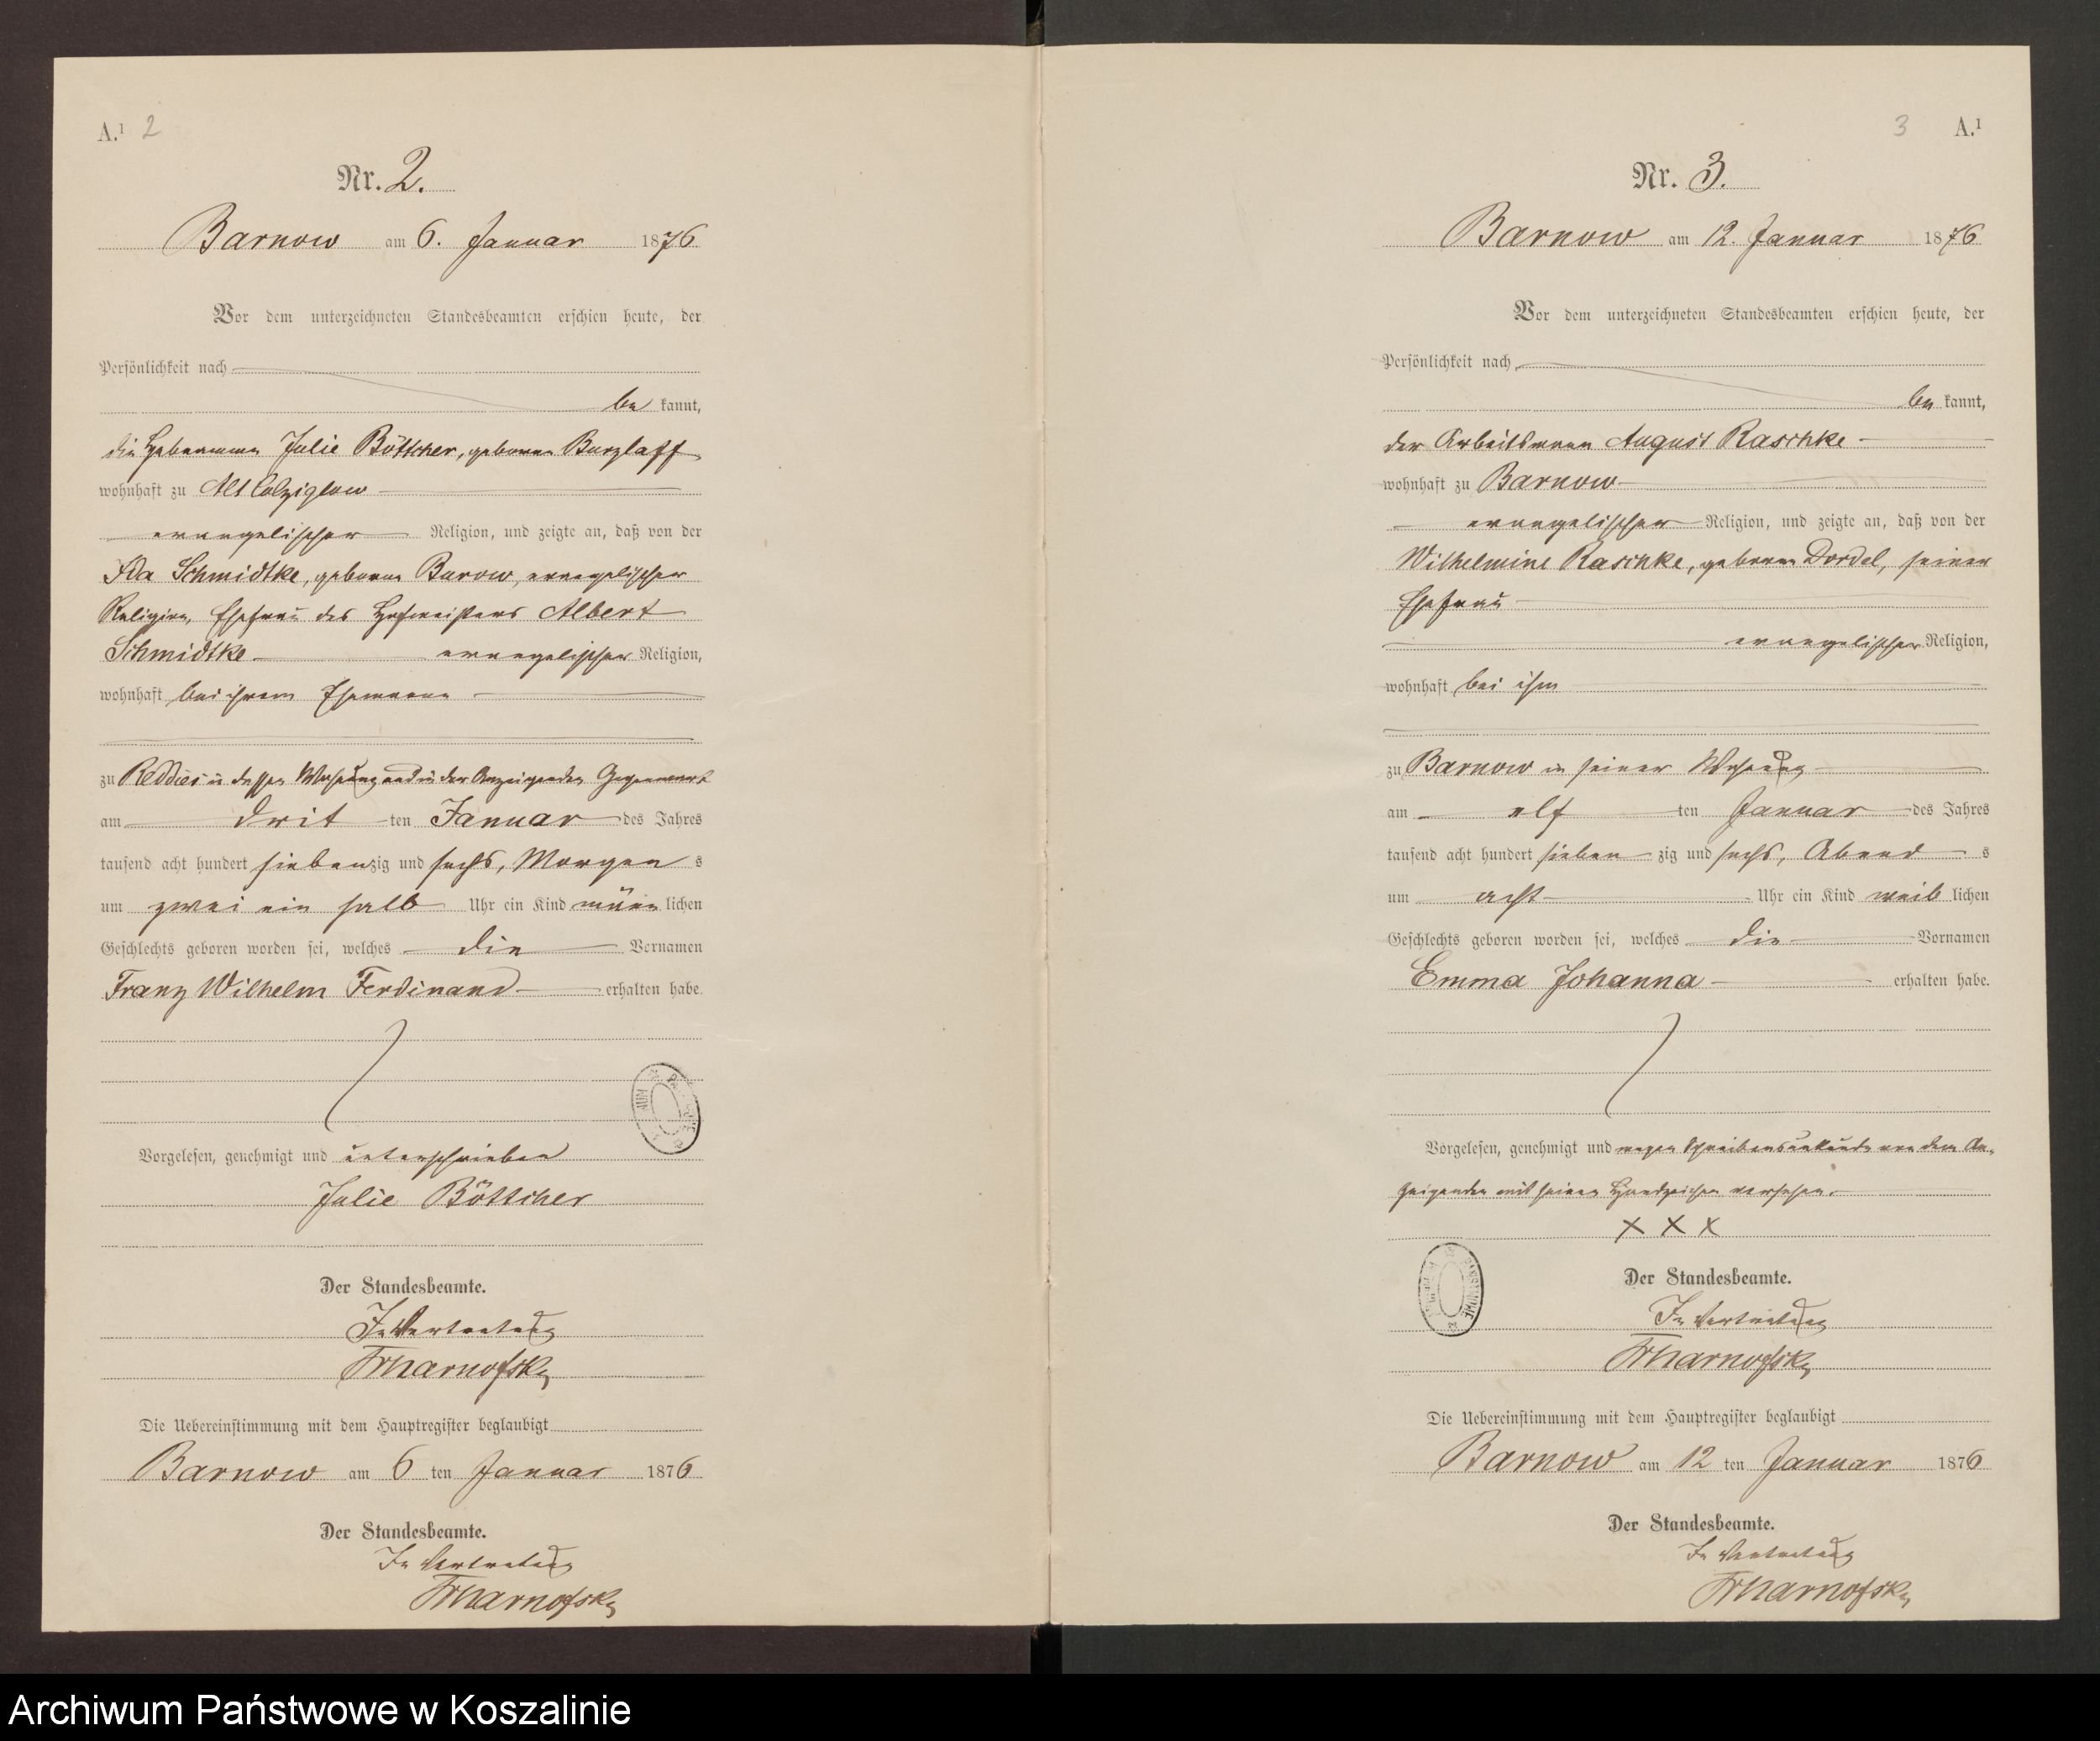 A.¹ 2
Nr. 2.
Barnow am 6. Januar 1876
Vor dem unterzeichneten Standesbeamten erschien heute, der
Persönlichkeit nach
be kannt,
die Hebamme Julie Böttcher, geborene Burzlaff
wohnhaft zu Alt Colziglow
evangelischer Religion, und zeigte an, daß von der
Ida Schmidtke, geborene Burow, evangelischer
Religion, Ehefrau des Hofmeisters Albert
Schmidtke evangelischer Religion,
wohnhaft bei ihrem Ehemanne
zu Reddies in dessen Wohnung und in der Anzeigenden Gegenwart
am drit ten Januar des Jahres
tausend acht hundert siebenzig und sechs, Morgen s
um zwei ein halb Uhr ein Kind männ lichen
Geschlechts geboren worden sei, welches die Vornamen
Franz Wilhelm Ferdinand erhalten habe.
Vorgelesen, genehmigt und unterschrieben
Julie Böttcher
Der Standesbeamte.
In Vertretung
Die Uebereinstimmung mit dem Hauptregister beglaubigt
Barnow am 6 ten Januar 1876
Der Standesbeamte.
In Vertretung
3 A.¹
Nr. 3.
Barnow am 12. Januar 1876
Vor dem unterzeichneten Standesbeamten erschien heute, der
Persönlichkeit nach
be kannt,
der Arbeitsmann August Raschke
wohnhaft zu Barnow
evangelischer Religion, und zeigte an, daß von der
Wilhelmine Raschke, geborene Dordel, seiner
Ehefrau
evangelischer Religion,
wohnhaft bei ihm
zu Barnow in seiner Wohnung
am elf ten Januar des Jahres
tausend acht hundert sieben zig und sechs, Abend s
um acht Uhr ein Kind weib lichen
Geschlechts geboren worden sei, welches die Vornamen
Emma Johanna erhalten habe.
Vorgelesen, genehmigt und wegen Schreibensunkunde von dem An-
zeigenden mit seinem Handzeichen versehen.
X X X
Der Standesbeamte.
In Vertretung
Die Uebereinstimmung mit dem Hauptregister beglaubigt
Barnow am 12 ten Januar 1876
Der Standesbeamte.
In Vertretung
Archiwum Państwowe w Koszalinie